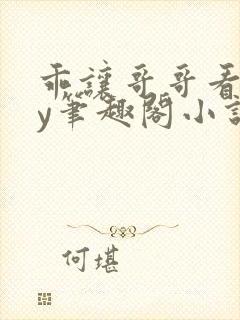 乖讓哥哥看
y筆趣閣小說
何堪